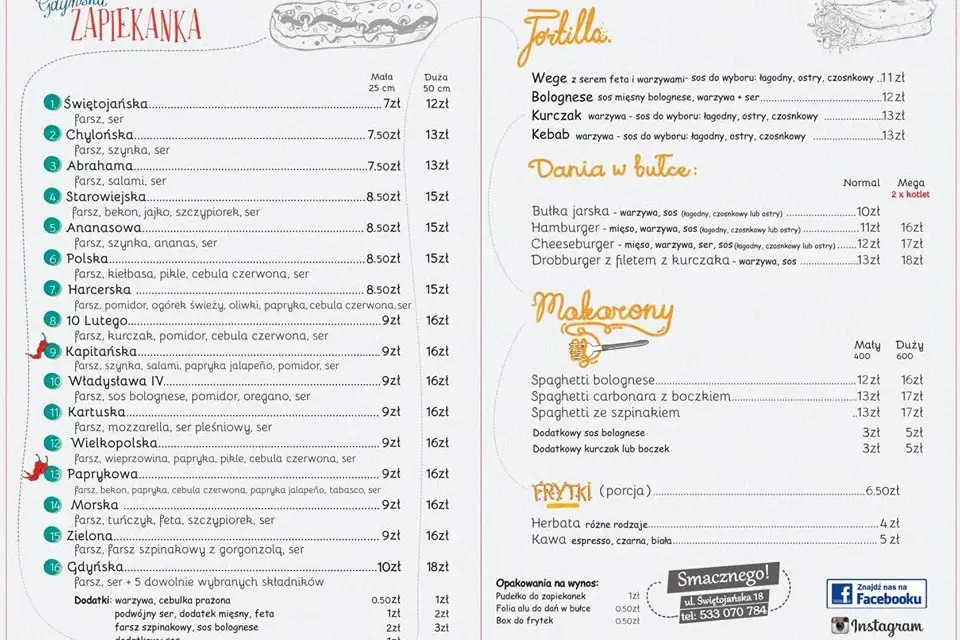 Gdyńska
ZAPIEKANKA
Mała Duża
25 cm 50 cm
1 Świętojańska 7zł 12zł
farsz, ser
2 Chylońska 7.50zł 13zł
farsz, szynka, ser
3 Abrahama 7.50zł 13zł
farsz, salami, ser
4 Starowiejska 8.50zł 15zł
farsz, bekon, jajko, szczypiorek, ser
5 Ananasowa 8.50zł 15zł
farsz, szynka, ananas, ser
6 Polska 8.50zł 15zł
farsz, kiełbasa, pikle, cebula czerwona, ser
7 Harcerska 8.50zł 15zł
farsz, pomidor, ogórek świeży, oliwki, papryka, cebula czerwona, ser
8 10 Lutego 9zł 16zł
farsz, kurczak, pomidor, cebula czerwona, ser
9 Kapitańska 9zł 16zł
farsz, szynka, salami, papryka jalapeño, pomidor, ser
10 Władysława IV 9zł 16zł
farsz, sos bolognese, pomidor, oregano, ser
11 Kartuska 9zł 16zł
farsz, mozzarella, ser pleśniowy, ser
12 Wielkopolska 9zł 16zł
farsz, wieprzowina, papryka, pikle, cebula czerwona, ser
13 Paprykowa 9zł 16zł
farsz, bekon, papryka, cebula czerwona, papryka jalapeño, tabasco, ser
14 Morska 9zł 16zł
farsz, tuńczyk, feta, szczypiorek, ser
15 Zielona 9zł 16zł
farsz, farsz szpinakowy z gorgonzolą, ser
16 Gdyńska 10zł 18zł
farsz, ser + 5 dowolnie wybranych składników
Dodatki: warzywa, cebulka prażona 0.50zł 1zł
podwójny ser, dodatek mięsny, feta 1zł 2zł
farsz szpinakowy, sos bolognese 2zł 3zł
Tortilla.
Wege z serem feta i warzywami- sos do wyboru: łagodny, ostry, czosnkowy ..11zł
Bolognese sos mięsny bolognese, warzywa + ser 12zł
Kurczak warzywa - sos do wyboru: łagodny, ostry, czosnkowy 13zł
Kebab warzywa - sos do wyboru: łagodny, ostry, czosnkowy 13zł
Dania w bułce:
Normal Mega
2 x kotlet
Bułka jarska - warzywa, sos (łagodny, czosnkowy lub ostry) 10zł
Hamburger - mięso, warzywa, sos (łagodny, czosnkowy lub ostry) 11zł 16zł
Cheeseburger - mięso, warzywa, ser, sos (łagodny, czosnkowy lub ostry) 12zł 17zł
Drobburger z filetem z kurczaka - warzywa, sos 13zł 18zł
Makarony
Mały Duży
400 600
Spaghetti bolognese 12zł 16zł
Spaghetti carbonara z boczkiem 13zł 17zł
Spaghetti ze szpinakiem ..13zł 17zł
Dodatkowy sos bolognese 3zł 5zł
Dodatkowy kurczak lub boczek 3zł 5zł
FRYTKI (porcja) 6.50zł
Herbata różne rodzaje 4 zł
Kawa espresso, czarna, biała 5 zł
Opakowania na wynos:
Pudełko do zapiekanek 1zł
Folia alu do dań w bułce 0.50zł
Box do frytek 0.50zł
Smacznego!
ul. Świętojańska 18
tel: 533 070 784
Znajdź nas na
Facebooku
Instagram